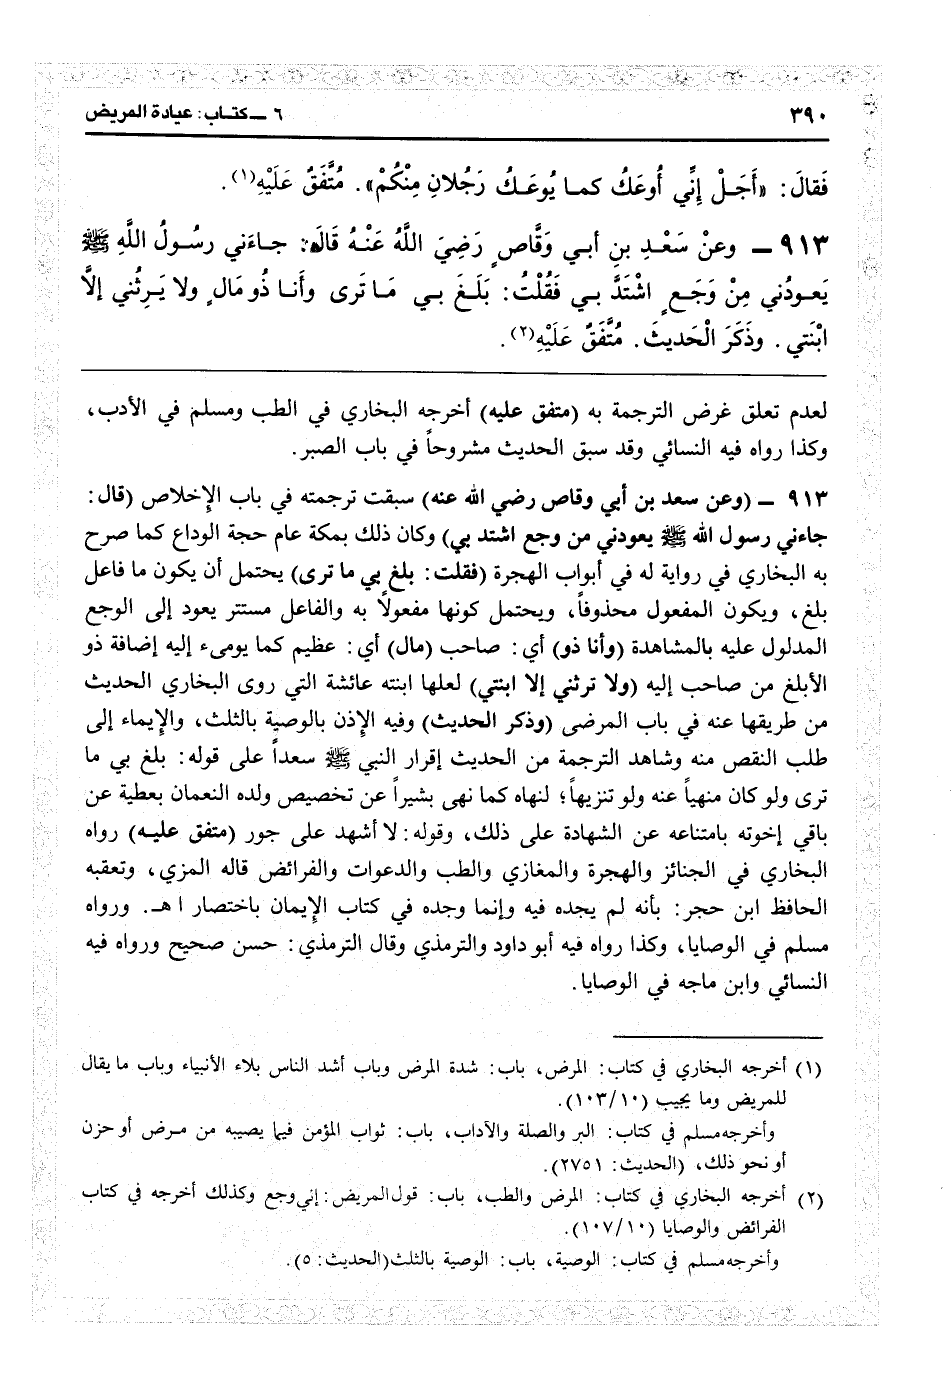 ٣٩٠
٦ ــ كتــاب: عيادة المريض
فَقالَ: «أَجَلْ إِنِّي أُوعَكُ كمـا يُوعَـكُ رَجُلانِ مِنْكُمْ». مُتَّفَقٌ عَلَيْهِ(١).
٩١٣ ــ وعنْ سَعْـدِ بنِ أبـي وَقَّاصٍ رَضِيَ اللَّهُ عَنْـهُ قَالَ: جـاءَني رسُـولُ اللَّهِ ﷺ
يَعـودُني مِنْ وَجَـعٍ اشْتَدَّ بـي فَقُلْتُ: بَلَـغَ بـي مَا تَرى وأَنـا ذُو مَالٍ ولا يَـرِثُني إلاَّ
ابْنَتي. وذَكَرَ الْحَديثَ. مُتَّفَقٌ عَلَيْهِ(٢).
لعدم تعلق غرض الترجمة به (متفق عليه) أخرجه البخاري في الطب ومسلم في الأدب،
وكذا رواه فيه النسائي وقد سبق الحديث مشروحاً في باب الصبر.
٩١٣ ــ (وعن سعد بن أبي وقاص رضي الله عنه) سبقت ترجمته في باب الإخلاص (قال:
جاءني رسول الله ﷺ يعودني من وجع اشتد بي) وكان ذلك بمكة عام حجة الوداع كما صرح
به البخاري في رواية له في أبواب الهجرة (فقلت: بلغ بي ما ترى) يحتمل أن يكون ما فاعل
بلغ، ويكون المفعول محذوفاً، ويحتمل كونها مفعولاً به والفاعل مستتر يعود إلى الوجع
المدلول عليه بالمشاهدة (وأنا ذو) أي: صاحب (مال) أي: عظيم كما يومىء إليه إضافة ذو
الأبلغ من صاحب إليه (ولا ترثني إلا ابنتي) لعلها ابنته عائشة التي روى البخاري الحديث
من طريقها عنه في باب المرضى (وذكر الحديث) وفيه الإذن بالوصية بالثلث، والإيماء إلى
طلب النقص منه وشاهد الترجمة من الحديث إقرار النبي ﷺ سعداً على قوله: بلغ بي ما
ترى ولو كان منهياً عنه ولو تنزيهاً؛ لنهاه كما نهى بشيراً عن تخصيص ولده النعمان بعطية عن
باقي إخوته بامتناعه عن الشهادة على ذلك، وقوله: لا أشهد على جور (متفق عليـه) رواه
البخاري في الجنائز والهجرة والمغازي والطب والدعوات والفرائض قاله المزي، وتعقبه
الحافظ ابن حجر: بأنه لم يجده فيه وإنما وجده في كتاب الإيمان باختصار ا هـ. ورواه
مسلم في الوصايا، وكذا رواه فيه أبو داود والترمذي وقال الترمذي: حسن صحيح ورواه فيه
النسائي وابن ماجه في الوصايا.
(١) أخرجه البخاري في كتاب: المرض، باب: شدة المرض وباب أشد الناس بلاء الأنبياء وباب ما يقال
للمريض وما يجيب (١٠٣/١٠).
وأخرجه مسلم في كتاب: البر والصلة والآداب، باب: ثواب المؤمن فيما يصيبه من مـرض أو حزن
أو نحو ذلك، (الحديث: ٢٧٥١).
(٢) أخرجه البخاري في كتاب: المرض والطب، باب: قول المريض: إني وجع وكذلك أخرجه في كتاب
الفرائض والوصايا (١٠٧/١٠).
وأخرجه مسلم في كتاب: الوصية، باب: الوصية بالثلث (الحديث: ٥).